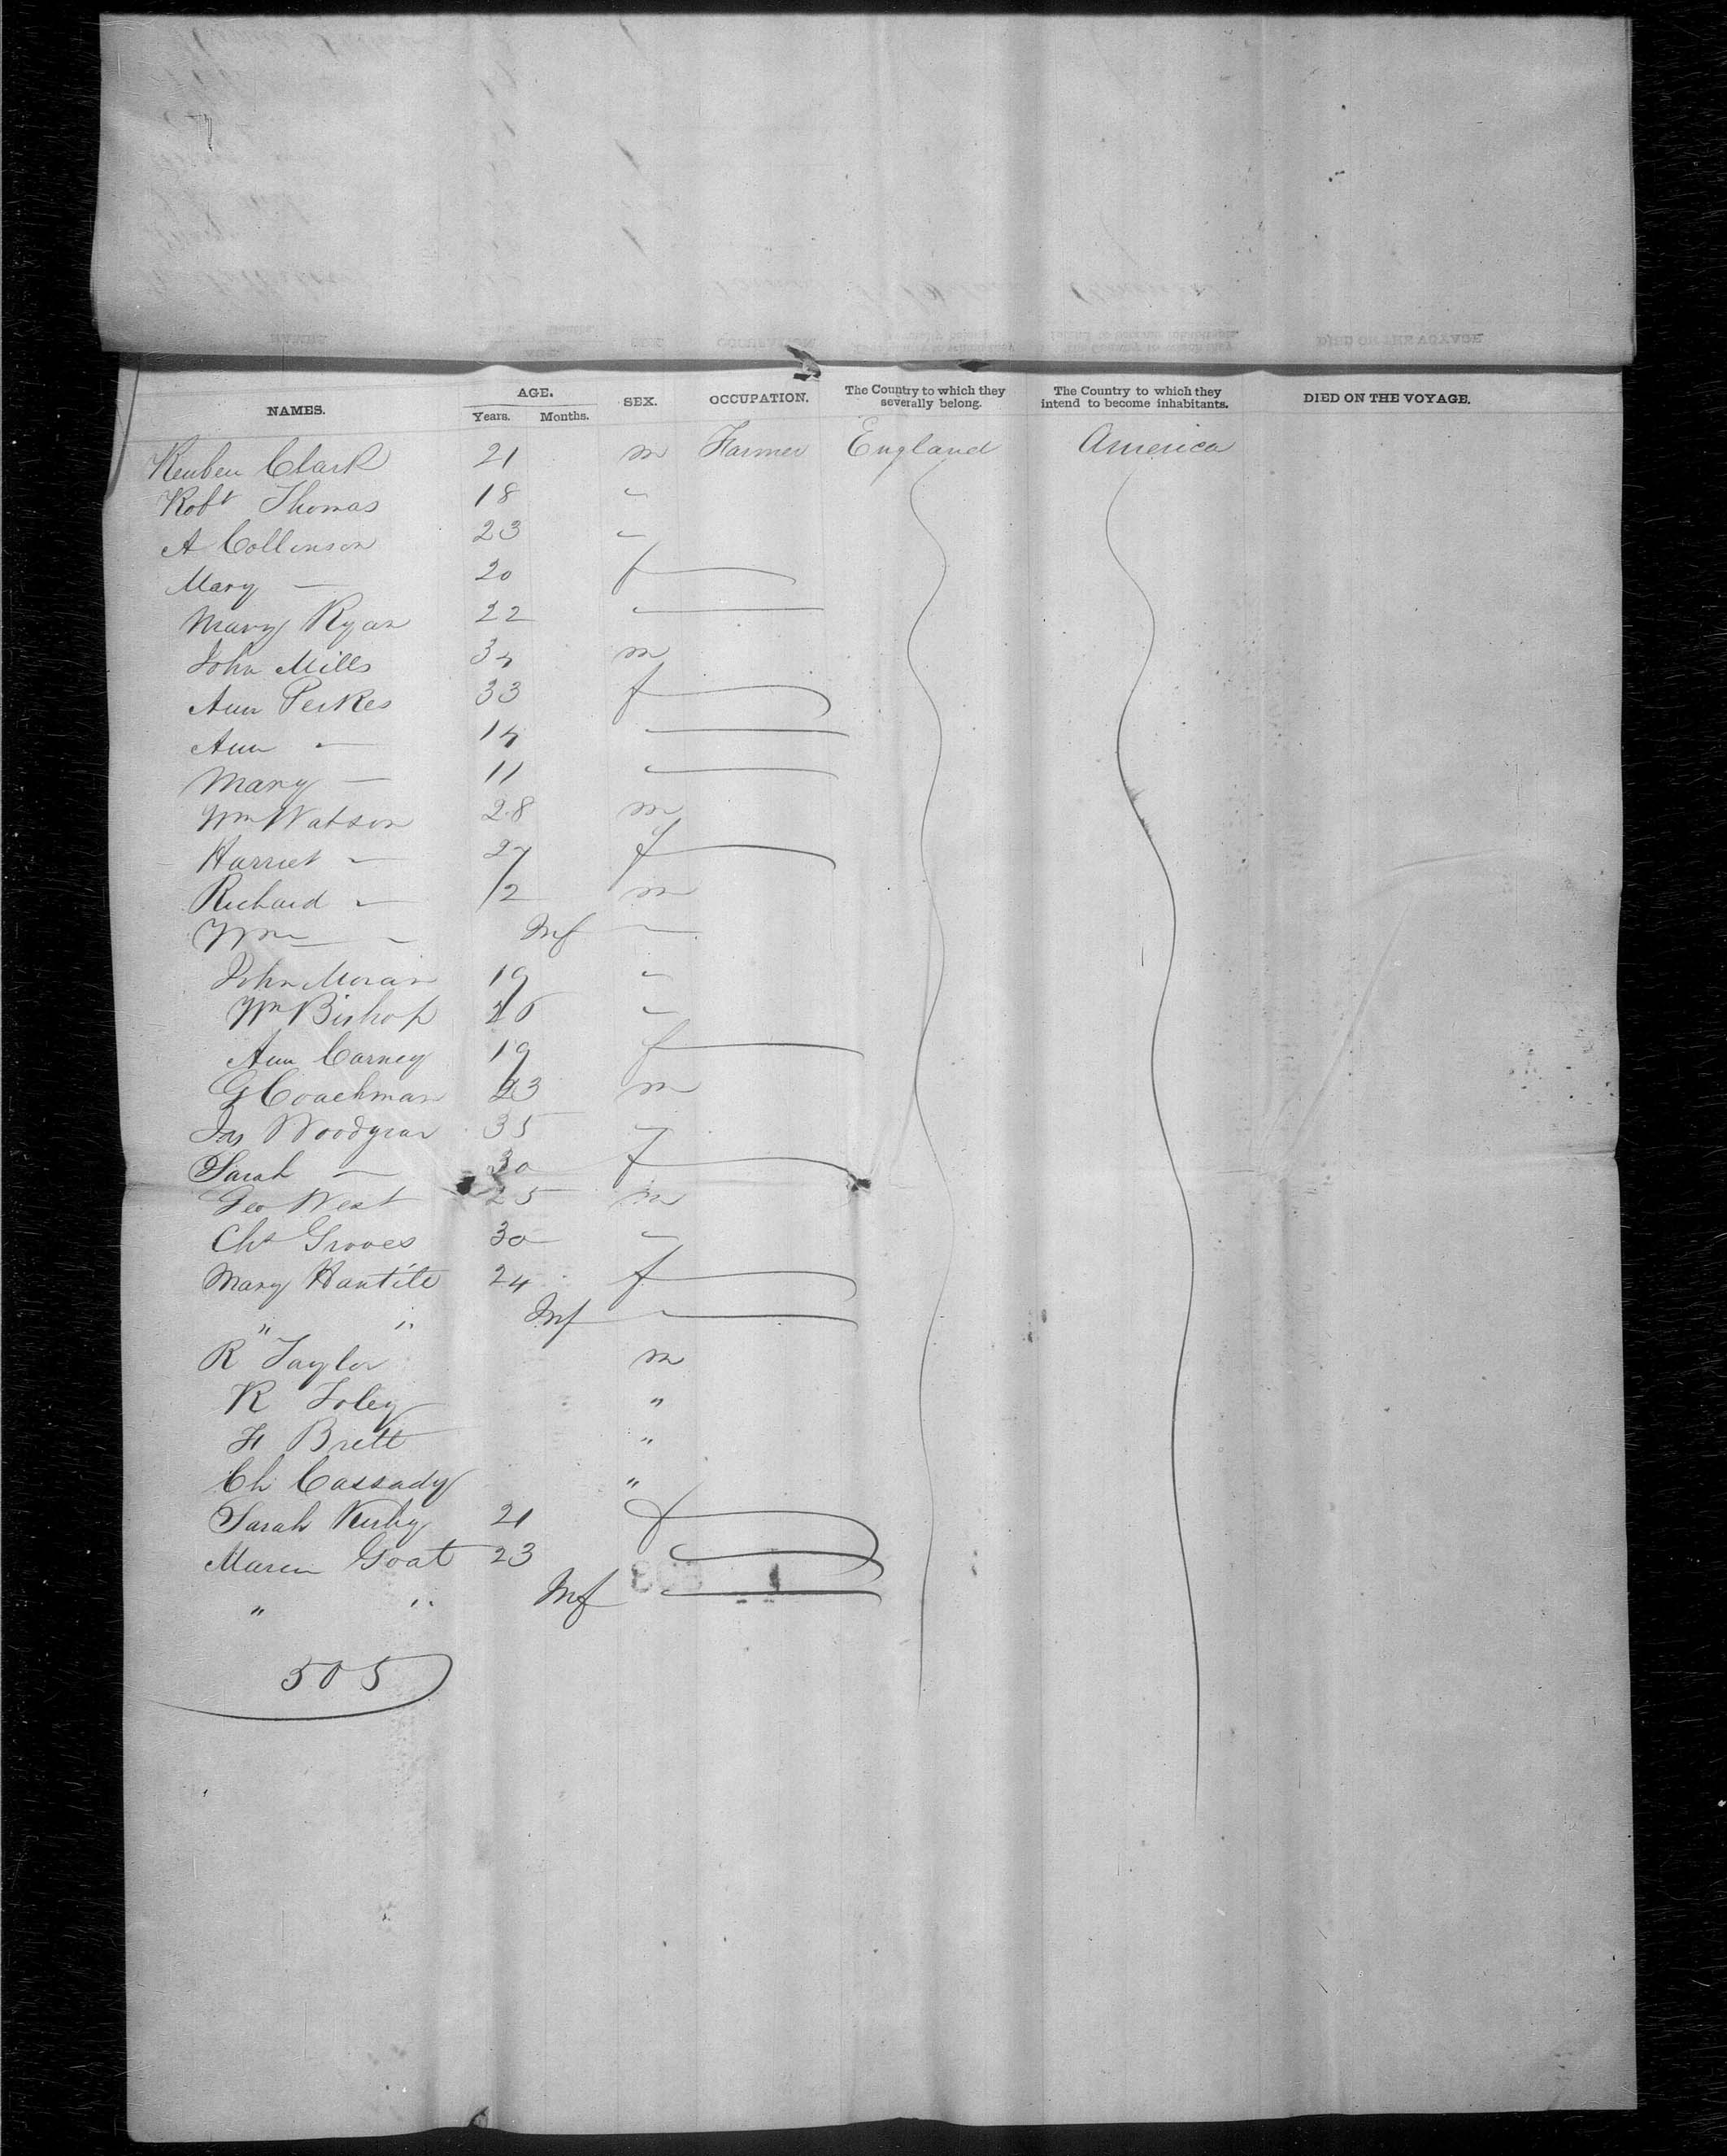 NAMES. AGE. Years. Months. SEX. OCCUPATION. The Country to which they severally belong. The Country to which they intend to become inhabitants. DIED ON THE VOYAGE.
Reuben Clark 21 m Farmer England America
Robt Thomas 18 "
A Collinson 23 "
Mary — 20 f
Mary Ryan 22 "
John Mills 34 m
Ann Perkes 33 f
Ann — 14 "
Mary — 11 "
Wm Watson 28 m
Harriet — 27 f
Richard — 12 m
Wm — Inf "
John Moran 19 "
Wm Bishop 26 "
Ann Carney 19 f
G Coachman 23 m
Jas Woodgear 35 "
Sarah — 30 f
Geo West 25 m
Chs Groves 30 "
Mary Hantite 24 f
" " Inf "
R Taylor m
R Foley "
H Brett "
Ch Cassady "
Sarah Kirby 21 f
Maren Goat 23 "
" " Inf "
505